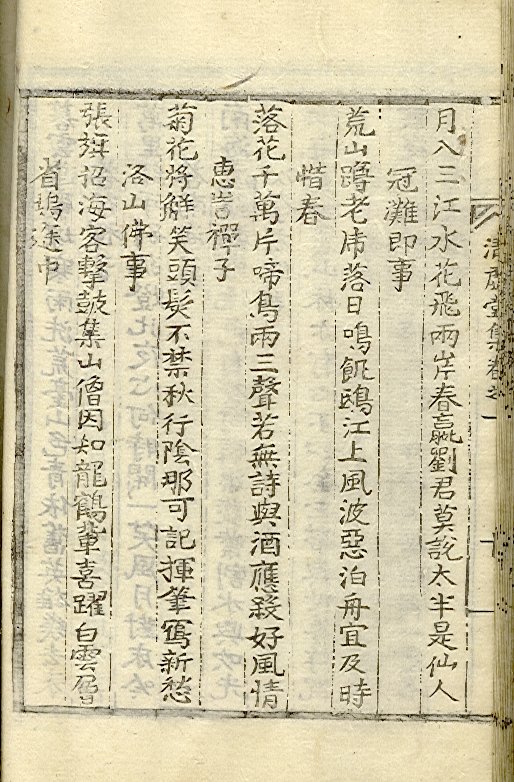 清虛堂集卷之一
月入三江水花飛兩岸春贏劉君莫說太半是仙人
冠灘即事
荒山蹲老虎落日鳴飢鴟江上風波惡泊舟宜及時
惜春
落花千萬片啼鳥兩三聲若無詩與酒應殺好風情
惠訔禪子
菊花將解笑頭髮不禁秋行陰那可記揮筆寫新愁
洛山佛事
張旗招海客擊鼓集山僧因知龍鶴輩喜躍白雲層
省鄔途中